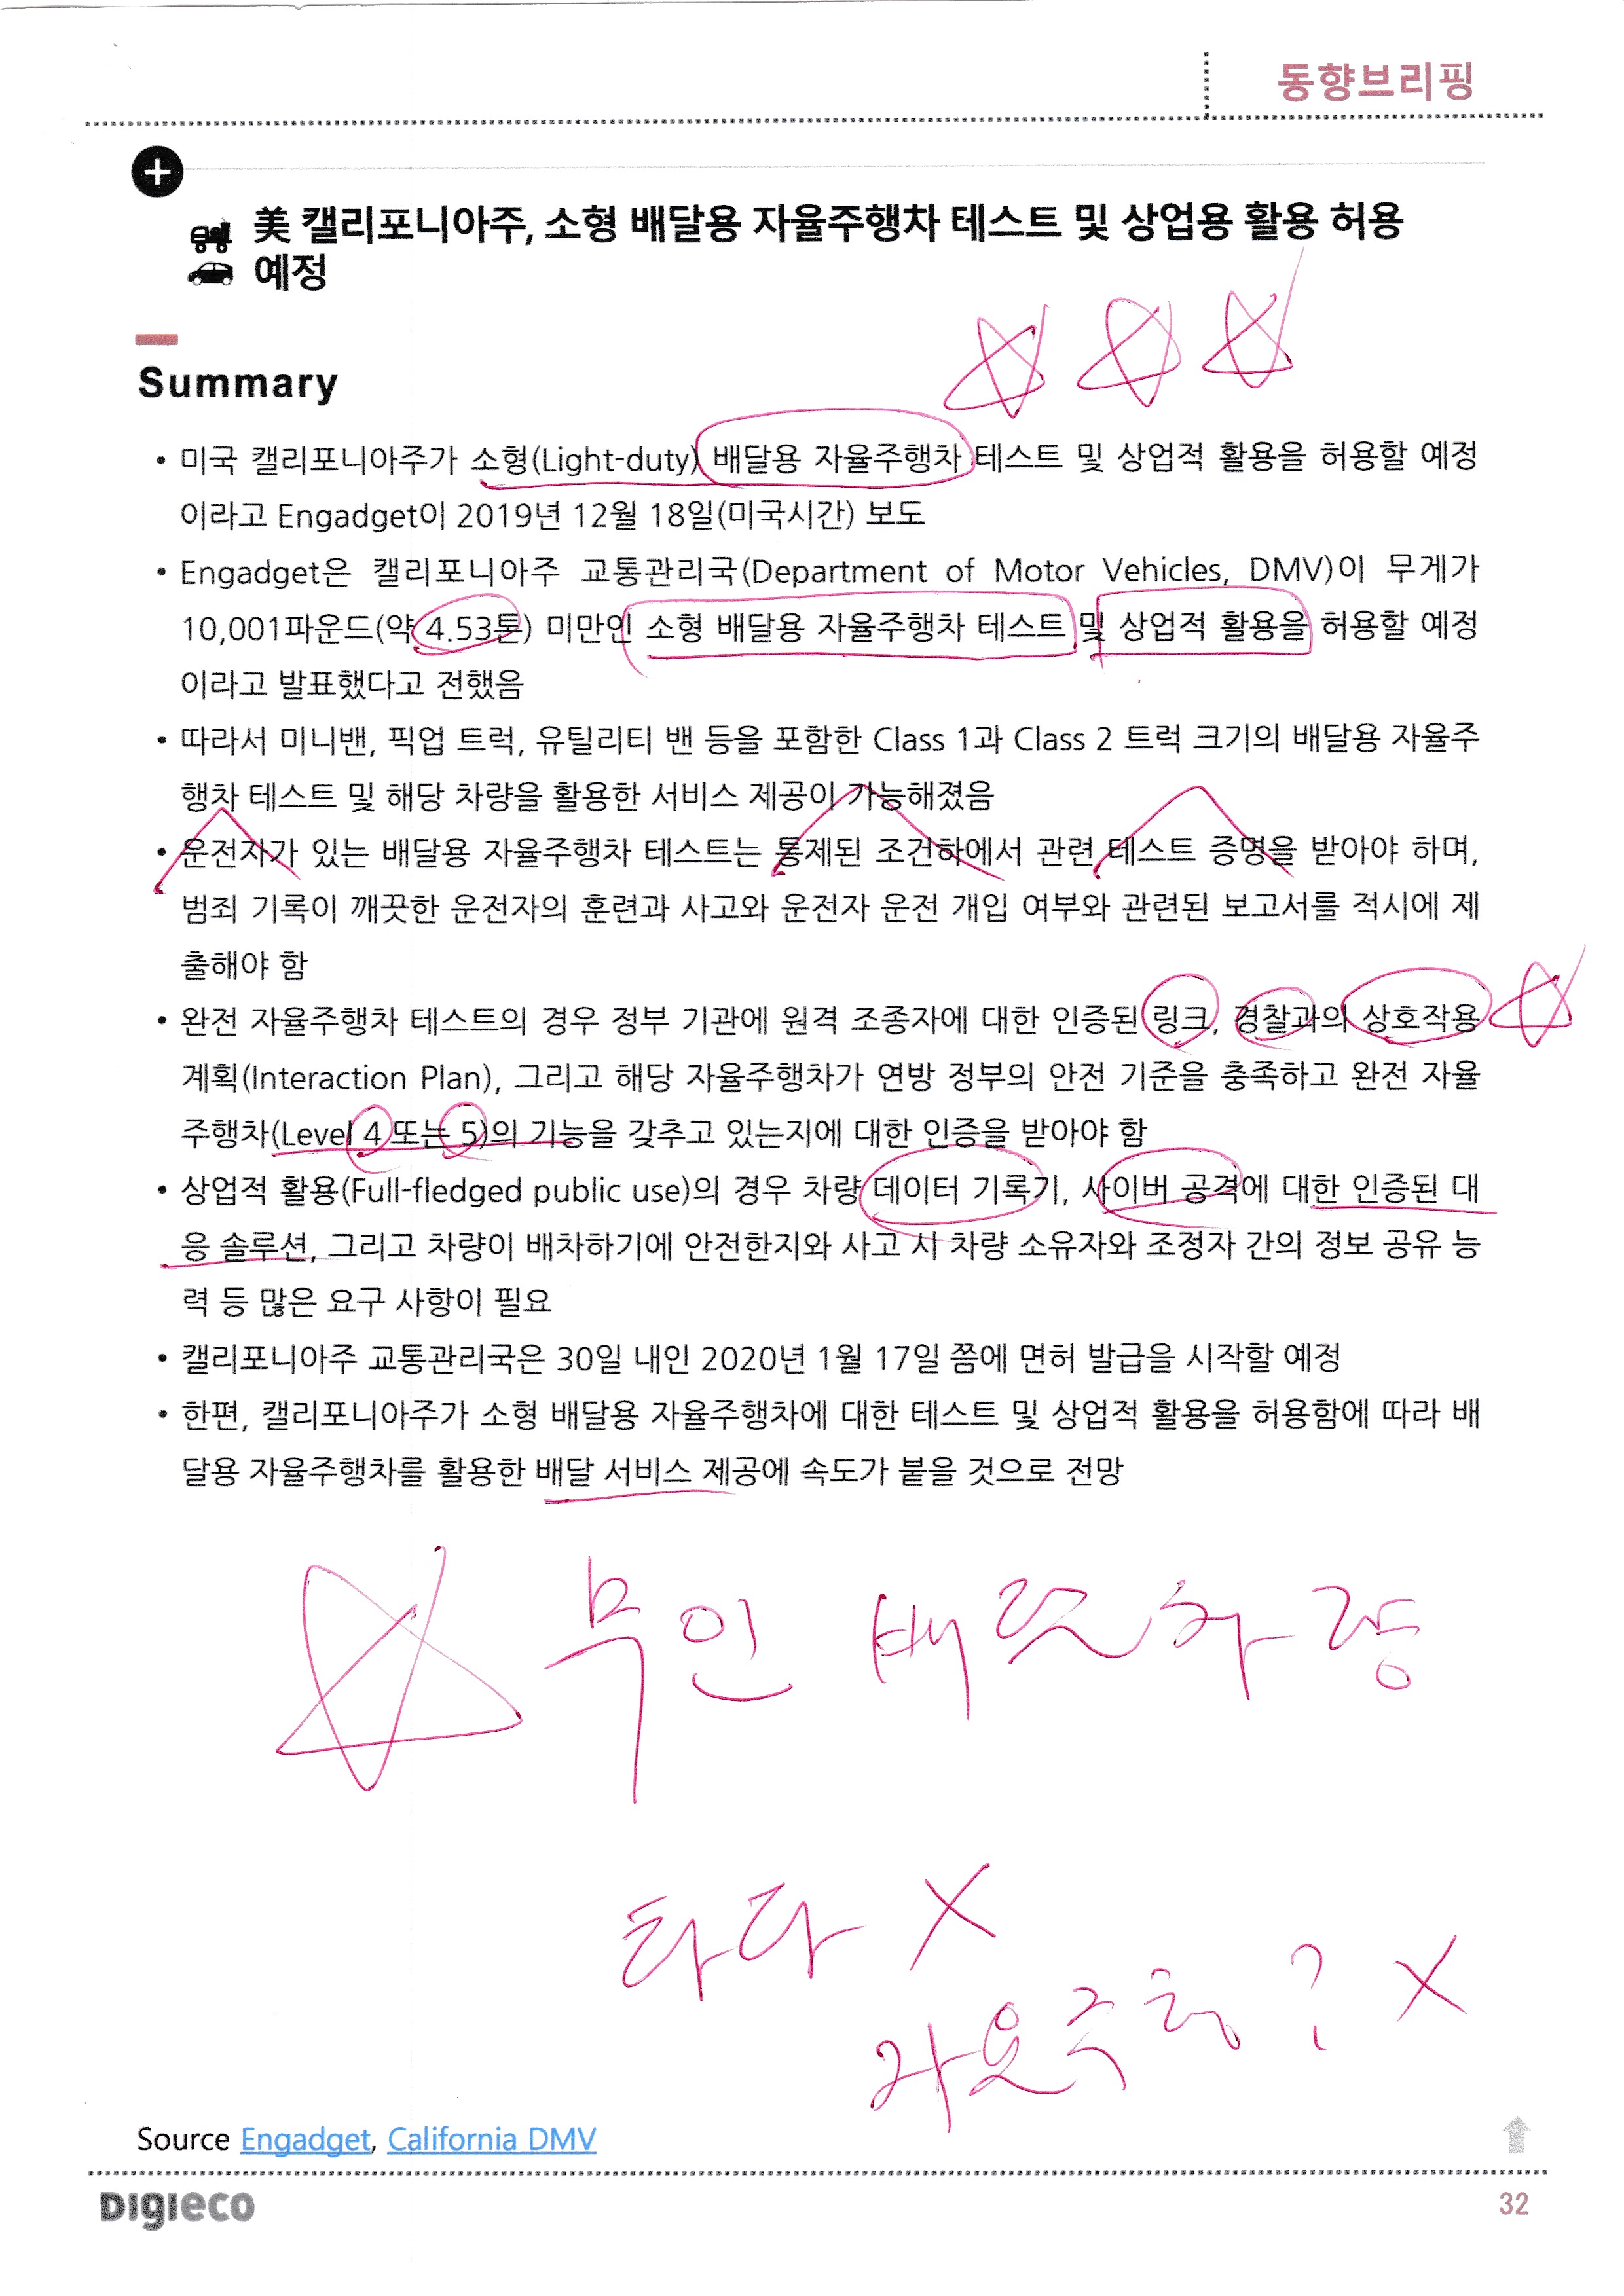 동향브리핑
美 캘리포니아주, 소형 배달용 자율주행차 테스트 및 상업용 활용 허용
예정
Summary
• 미국 캘리포니아주가 소형(Light-duty) 배달용 자율주행차 테스트 및 상업적 활용을 허용할 예정
이라고 Engadget이 2019년 12월 18일(미국시간) 보도
• Engadget은 캘리포니아주 교통관리국(Department of Motor Vehicles, DMV)이 무게가
10,001파운드(약 4.53톤) 미만인 소형 배달용 자율주행차 테스트 및 상업적 활용을 허용할 예정
이라고 발표했다고 전했음
• 따라서 미니밴, 픽업 트럭, 유틸리티 밴 등을 포함한 Class 1과 Class 2 트럭 크기의 배달용 자율주
행차 테스트 및 해당 차량을 활용한 서비스 제공이 가능해졌음
• 운전자가 있는 배달용 자율주행차 테스트는 통제된 조건하에서 관련 테스트 증명을 받아야 하며,
범죄 기록이 깨끗한 운전자의 훈련과 사고와 운전자 운전 개입 여부와 관련된 보고서를 적시에 제
출해야 함
• 완전 자율주행차 테스트의 경우 정부 기관에 원격 조종자에 대한 인증된 링크, 경찰과의 상호작용
계획(Interaction Plan), 그리고 해당 자율주행차가 연방 정부의 안전 기준을 충족하고 완전 자율
주행차(Level 4 또는 5)의 기능을 갖추고 있는지에 대한 인증을 받아야 함
• 상업적 활용(Full-fledged public use)의 경우 차량 데이터 기록기, 사이버 공격에 대한 인증된 대
응 솔루션, 그리고 차량이 배차하기에 안전한지와 사고 시 차량 소유자와 조정자 간의 정보 공유 능
력 등 많은 요구 사항이 필요
• 캘리포니아주 교통관리국은 30일 내인 2020년 1월 17일 쯤에 면허 발급을 시작할 예정
• 한편, 캘리포니아주가 소형 배달용 자율주행차에 대한 테스트 및 상업적 활용을 허용함에 따라 배
달용 자율주행차를 활용한 배달 서비스 제공에 속도가 붙을 것으로 전망
무인
타다 X
자율주행? X
Source Engadget, California DMV
DIGIECO
32